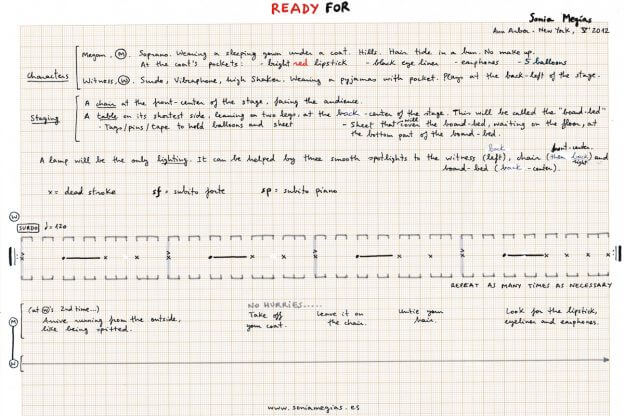 READY FOR
Sonia Megías
Ann Arbor - New York, V 2012
Characters
Megan, M. Soprano. Wearing a sleeping gown under a coat. Hills. Hair tide in a bun. No make up.
At the coat's pockets: - bright red lipstick - black eye liner - earphones - 5 balloons
Witness, W. Surdo, Vibraphone, high Shaker. Wearing a pyjamas with pocket. Plays at the back-left of the stage.
Staging
A chair at the front-center of the stage, facing the audience.
A table on its shortest side, leaning on two legs, at the back-center of the stage. This will be called the "board-bed"
- Tags/pins/tape to hold balloons and sheet
- Sheet that will cover the board-bed, waiting on the floor, at
the bottom part of the board-bed.
A lamp will be the only lighting. It can be helped by three smooth spotlights to the witness (back left), chair (front-center, then back right) and
board-bed (back-center).
x = dead stroke sf = subito forte sp = subito piano
W
SURDO ♩= 120
REPEAT AS MANY TIMES AS NECESSARY
M
(at W's 2nd time...)
Arrive running from the outside,
like being spitted.
NO HURRIES.....
Take off
your coat.
Leave it on
the chair.
Untie your
hair.
Look for the lipstick,
eyeliner and earphones.
W
www.soniamegias.es